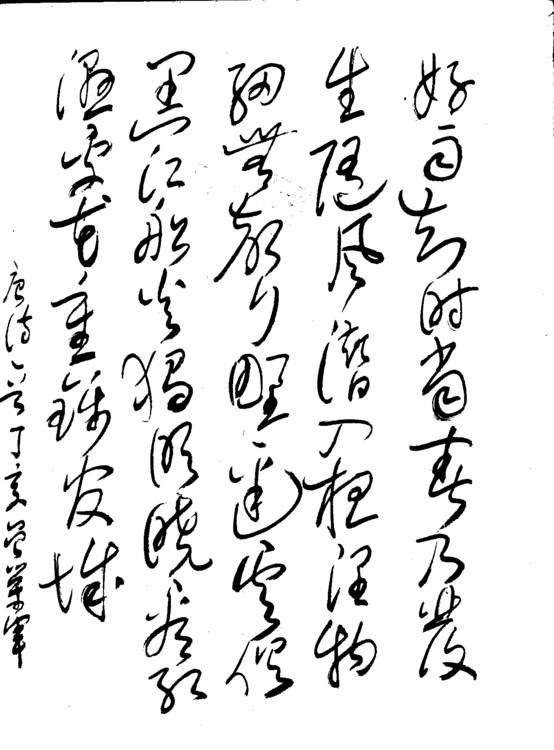 好雨知时当春乃發
生随风潜入夜润物
细無聲野径雲俱
黑江船火独明晓看红
湿处花重锦官城
唐诗一首丁亥